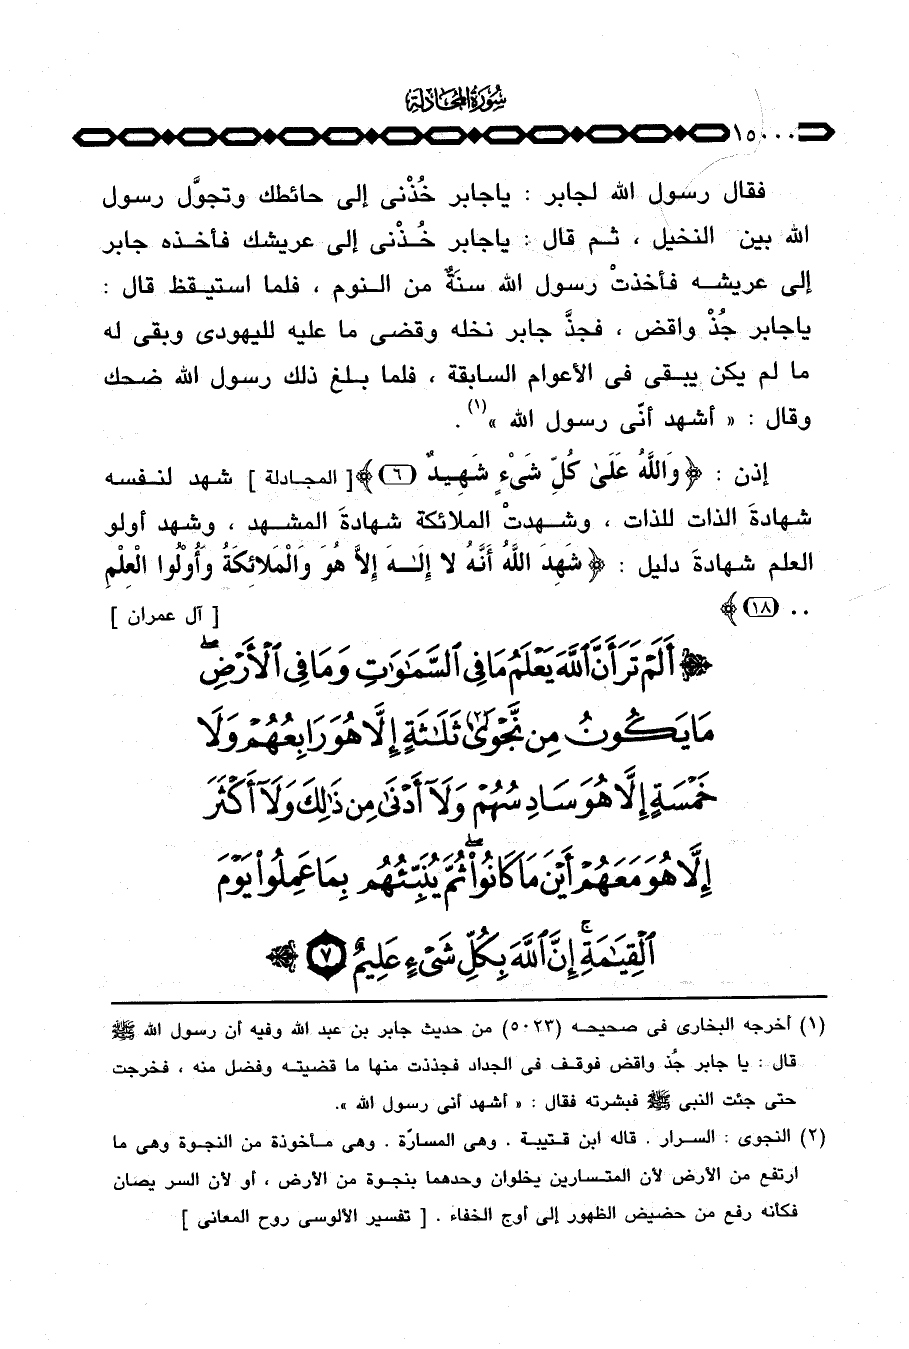 سورة المجادلة
١٥٠٠٠
فقال رسول الله لجابر : ياجابر خُذْنى إلى حائطك وتجوَّل رسول
الله بين النخيل ، ثـم قال : ياجابر خُـذْنى إلى عريشك فأخـذه جابر
إلى عريشـه فـأخذتْ رسول الله سنةٌ من الـنوم ، فلما استيـقظ قال :
ياجابر جُذْ واقض ، فـجذَّ جابر نخله وقضـى ما عليه لليهودى وبقى له
ما لم يكن يبـقى فى الأعوام السابقة ، فلما بـلـغ ذلك رسول الله ضحك
وقال : « أشهد أنّى رسول الله »(١) .
إذن : ﴿ وَاللَّهُ عَلَىٰ كُلِّ شَىْءٍ شَهِيدٌ (٦) ﴾ [ المجـادلة ] شهد لنـفسـه
شـهادةَ الذات للذات ، وشـهدتْ الملائكة شهادةَ المشـهد ، وشـهد أولو
العلم شـهادةَ دليل : ﴿ شَهِدَ اللَّهُ أَنَّهُ لا إِلَـٰـهَ إِلاَّ هُوَ وَالْمَلائِكَةُ وَأُوْلُوا الْعِلْمِ
.. (١٨) ﴾ [ آل عمران ]
﴿ أَلَمْ تَرَ أَنَّ ٱللَّهَ يَعْلَمُ مَا فِى ٱلسَّمَٰوَٰتِ وَمَا فِى ٱلْأَرْضِۖ
مَا يَكُونُ مِن نَّجْوَىٰ(٢) ثَلَٰثَةٍ إِلَّا هُوَ رَابِعُهُمْ وَلَا
خَمْسَةٍ إِلَّا هُوَ سَادِسُهُمْ وَلَآ أَدْنَىٰ مِن ذَٰلِكَ وَلَآ أَكْثَرَ
إِلَّا هُوَ مَعَهُمْ أَيْنَ مَا كَانُوا۟ۖ ثُمَّ يُنَبِّئُهُم بِمَا عَمِلُوا۟ يَوْمَ
ٱلْقِيَٰمَةِۚ إِنَّ ٱللَّهَ بِكُلِّ شَىْءٍ عَلِيمٌ ٧ ﴾
(١) أخرجه البخارى فى صحيحـه (٥٠٢٣) من حديث جابر بن عبد الله وفيه أن رسول الله ﷺ
قال : يا جابر جُذ واقض فوقـف فى الجداد فجذذت منها ما قضيتـه وفضل منه ، فخرجت
حتى جئت النبى ﷺ فبشرته فقال : « أشهد أنى رسول الله ».
(٢) النجوى : السـرار . قاله ابن قـتيبة . وهى المسارّة . وهى مـأخوذة من النجوة وهى ما
ارتفع من الأرض لأن المتـسارين يخلوان وحدهما بنجوة من الأرض ، أو لأن السر يصان
فكأنه رفع من حضيض الظهور إلى أوج الخفاء . [ تفسير الألوسى روح المعانى ]